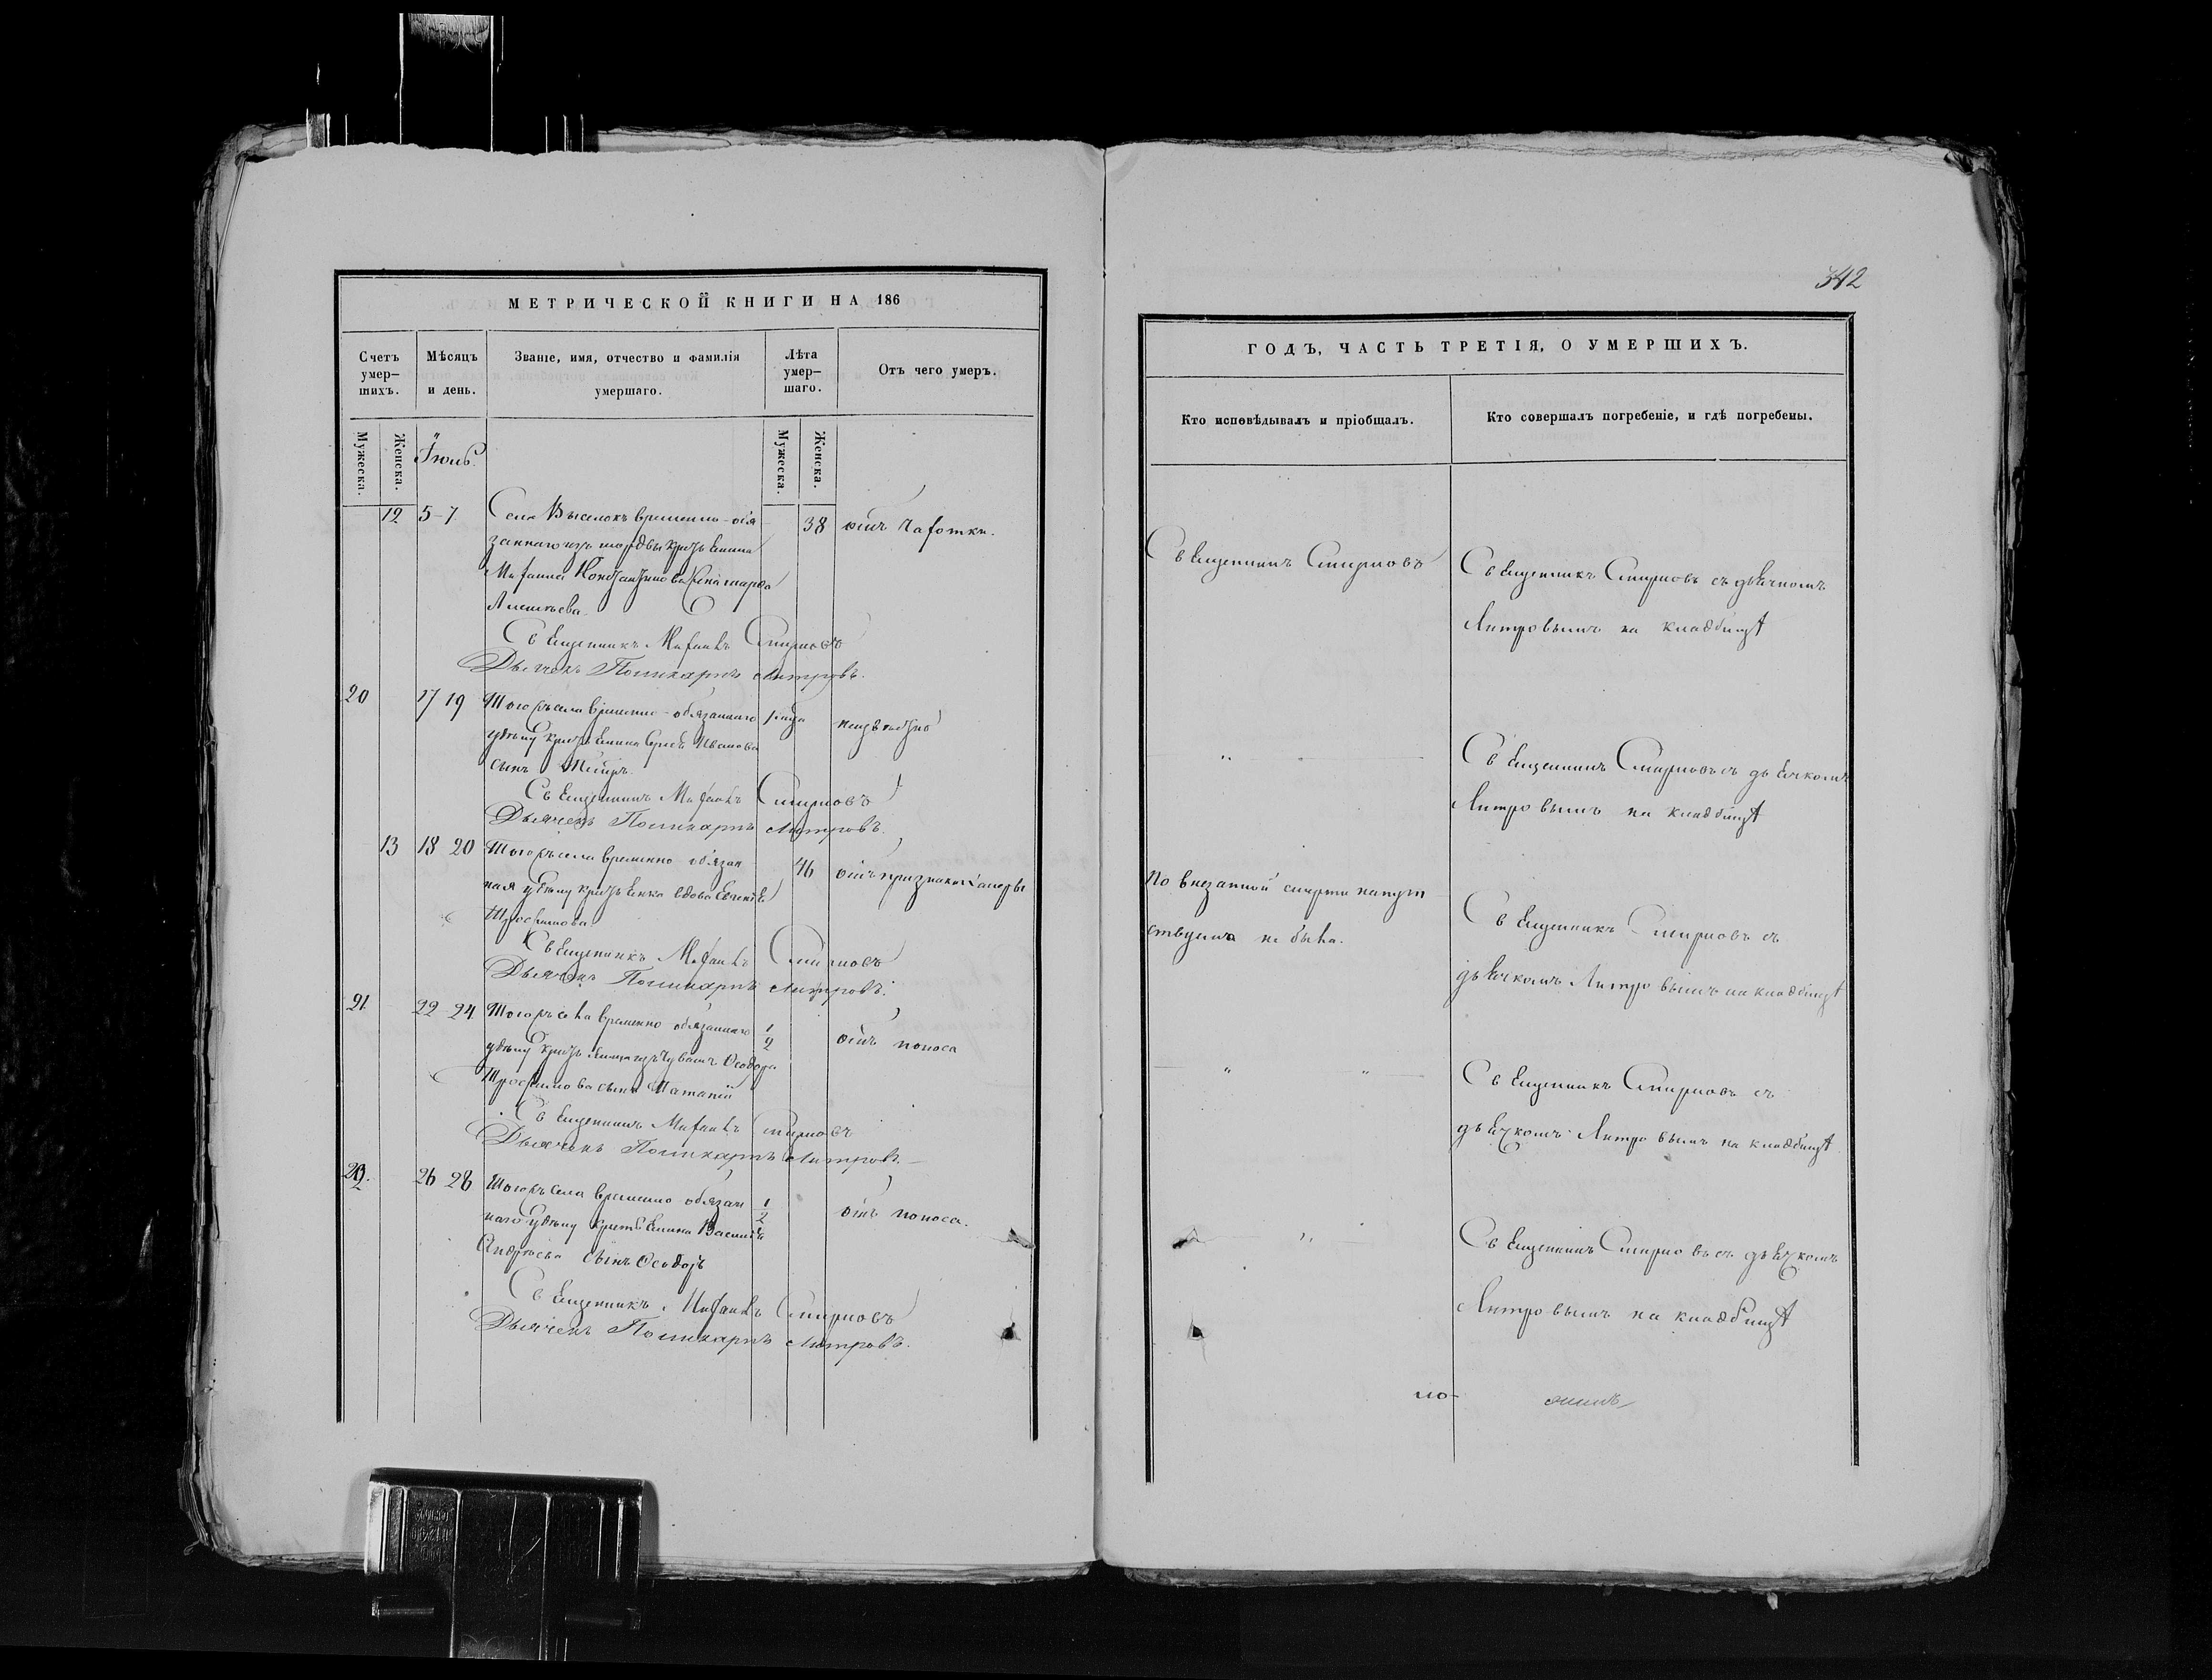 МЕТРИЧЕСКОЙ КНИГИ НА 186
Счетъ умер-
шихъ.
Мѣсяцъ
и день.
Званіе, имя, отчество и фамилія
умершаго.
Лѣта
умер-
шаго.
Отъ чего умеръ.
Мужеска.
Женска.
Мужеска.
Женска.
12 5-7 Села Выселокъ временно-обя 38 отъ чахотки.
заннаго изъ мордвы крестьянина
Михаила Константинова жена Марфа
Алексѣева.
Священникъ Михаилъ Смирновъ
Дьячекъ Поликарпъ Литровъ.
20 17 19 Тогожъ села временно-обязаннаго неизвѣстно
удѣлу крестьянина Иванова
сынъ
Священникъ Михаилъ Смирновъ
Дьячекъ Поликарпъ Литровъ.
13 18 20 Тогожъ села временно обязан 46 отъ
ная удѣлу крестьянка вдова
Трофимова.
Священникъ Михаилъ Смирновъ
Дьячекъ Поликарпъ Литровъ.
21. 22 24 Тогожъ села временно обязаннаго 1/2 отъ поноса
удѣлу крестьянина изъ чувашъ Ѳеодора
Трофимова сынъ
Священникъ Михаилъ Смирновъ
Дьячекъ Поликарпъ Литровъ.
22. 26 28 Тогожъ села временно обязан 1/2 отъ поноса.
наго удѣлу крестьянина Василія
Андреева сынъ Ѳеодоръ
Священникъ Михаилъ Смирновъ
Дьячекъ Поликарпъ Литровъ.
342
ГОДЪ, ЧАСТЬ ТРЕТІЯ, О УМЕРШИХЪ.
Кто исповѣдывалъ и пріобщалъ.
Кто совершалъ погребеніе, и гдѣ погребены.
Священникъ Смирновъ
Священникъ Смирновъ съ дьячкомъ
Литровымъ на кладбищѣ
Священникъ Смирновъ съ дьячкомъ
Литровымъ на кладбищѣ
По внезапной смерти напут
ствуема не была.
Священникъ Смирновъ съ
дьячкомъ Литровымъ на кладбищѣ
Священникъ Смирновъ съ
дьячкомъ Литровымъ на кладбищѣ
Священникъ Смирновъ съ дьячкомъ
Литровымъ на кладбищѣ